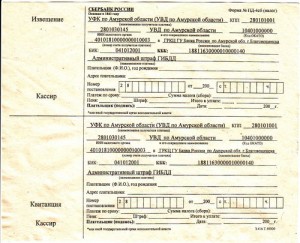 Извещение
СБЕРБАНК РОССИИ
Форма № ПД-4сб (налог)
УФК по Амурской области (УВД по Амурской области) КПП 280101001
2801030145 УВД по Амурской области 10401000000
40101810000000010003 в ГРКЦ ГУ Банка России по Амурской обл. г. Благовещенска
БИК: 041012001 КБК: 18811630000010000140
Административный штраф ГИБДД
Плательщик (Ф.И.О.), год рождения
Адрес плательщика
ИНН плательщика 28 № л/с плательщика
Платеж по сроку: Сумма налога (сбора)
Пеня: Штраф: Итого к уплате:
Плательщик (подпись) Дата 200 г.
Кассир
УФК по Амурской области (УВД по Амурской области) КПП 280101001
2801030145 УВД по Амурской области 10401000000
40101810000000010003 в ГРКЦ ГУ Банка России по Амурской обл. г. Благовещенска
БИК: 041012001 КБК: 18811630000010000140
Административный штраф ГИБДД
Плательщик (Ф.И.О.), год рождения
Адрес плательщика
ИНН плательщика 28 № л/с плательщика
Платеж по сроку: Сумма налога (сбора)
Пеня: Штраф: Итого к уплате:
Плательщик (подпись) Дата 200 г.
Квитанция
Кассир